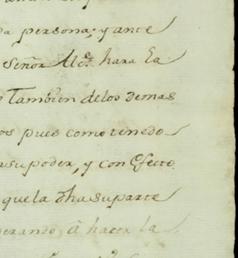 da persona; y ante
Señor Alc.e hara la
Tambien delos demas
os pues como tenedo
su poder, y con efecto
que la dha suparte
perando, â hacer la